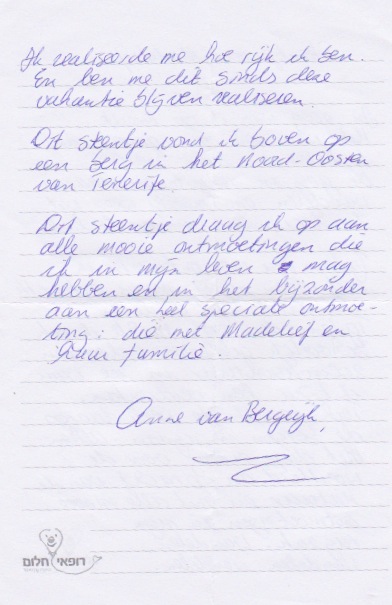 Ik realiseerde me hoe rijk ik ben.
En ben me dit sinds deze
vakantie blijven realiseren.
Dit steentje vond ik boven op
een berg in het Noord-Oosten
van Tenerife.
Dit steentje draag ik op aan
alle mooie ontmoetingen die
ik in mijn leven mag
hebben en in het bijzonder
aan een heel speciale ontmoe-
ting: die met Madelief en
haar familie.
Anne van Bergeijk,
רופאי חלום